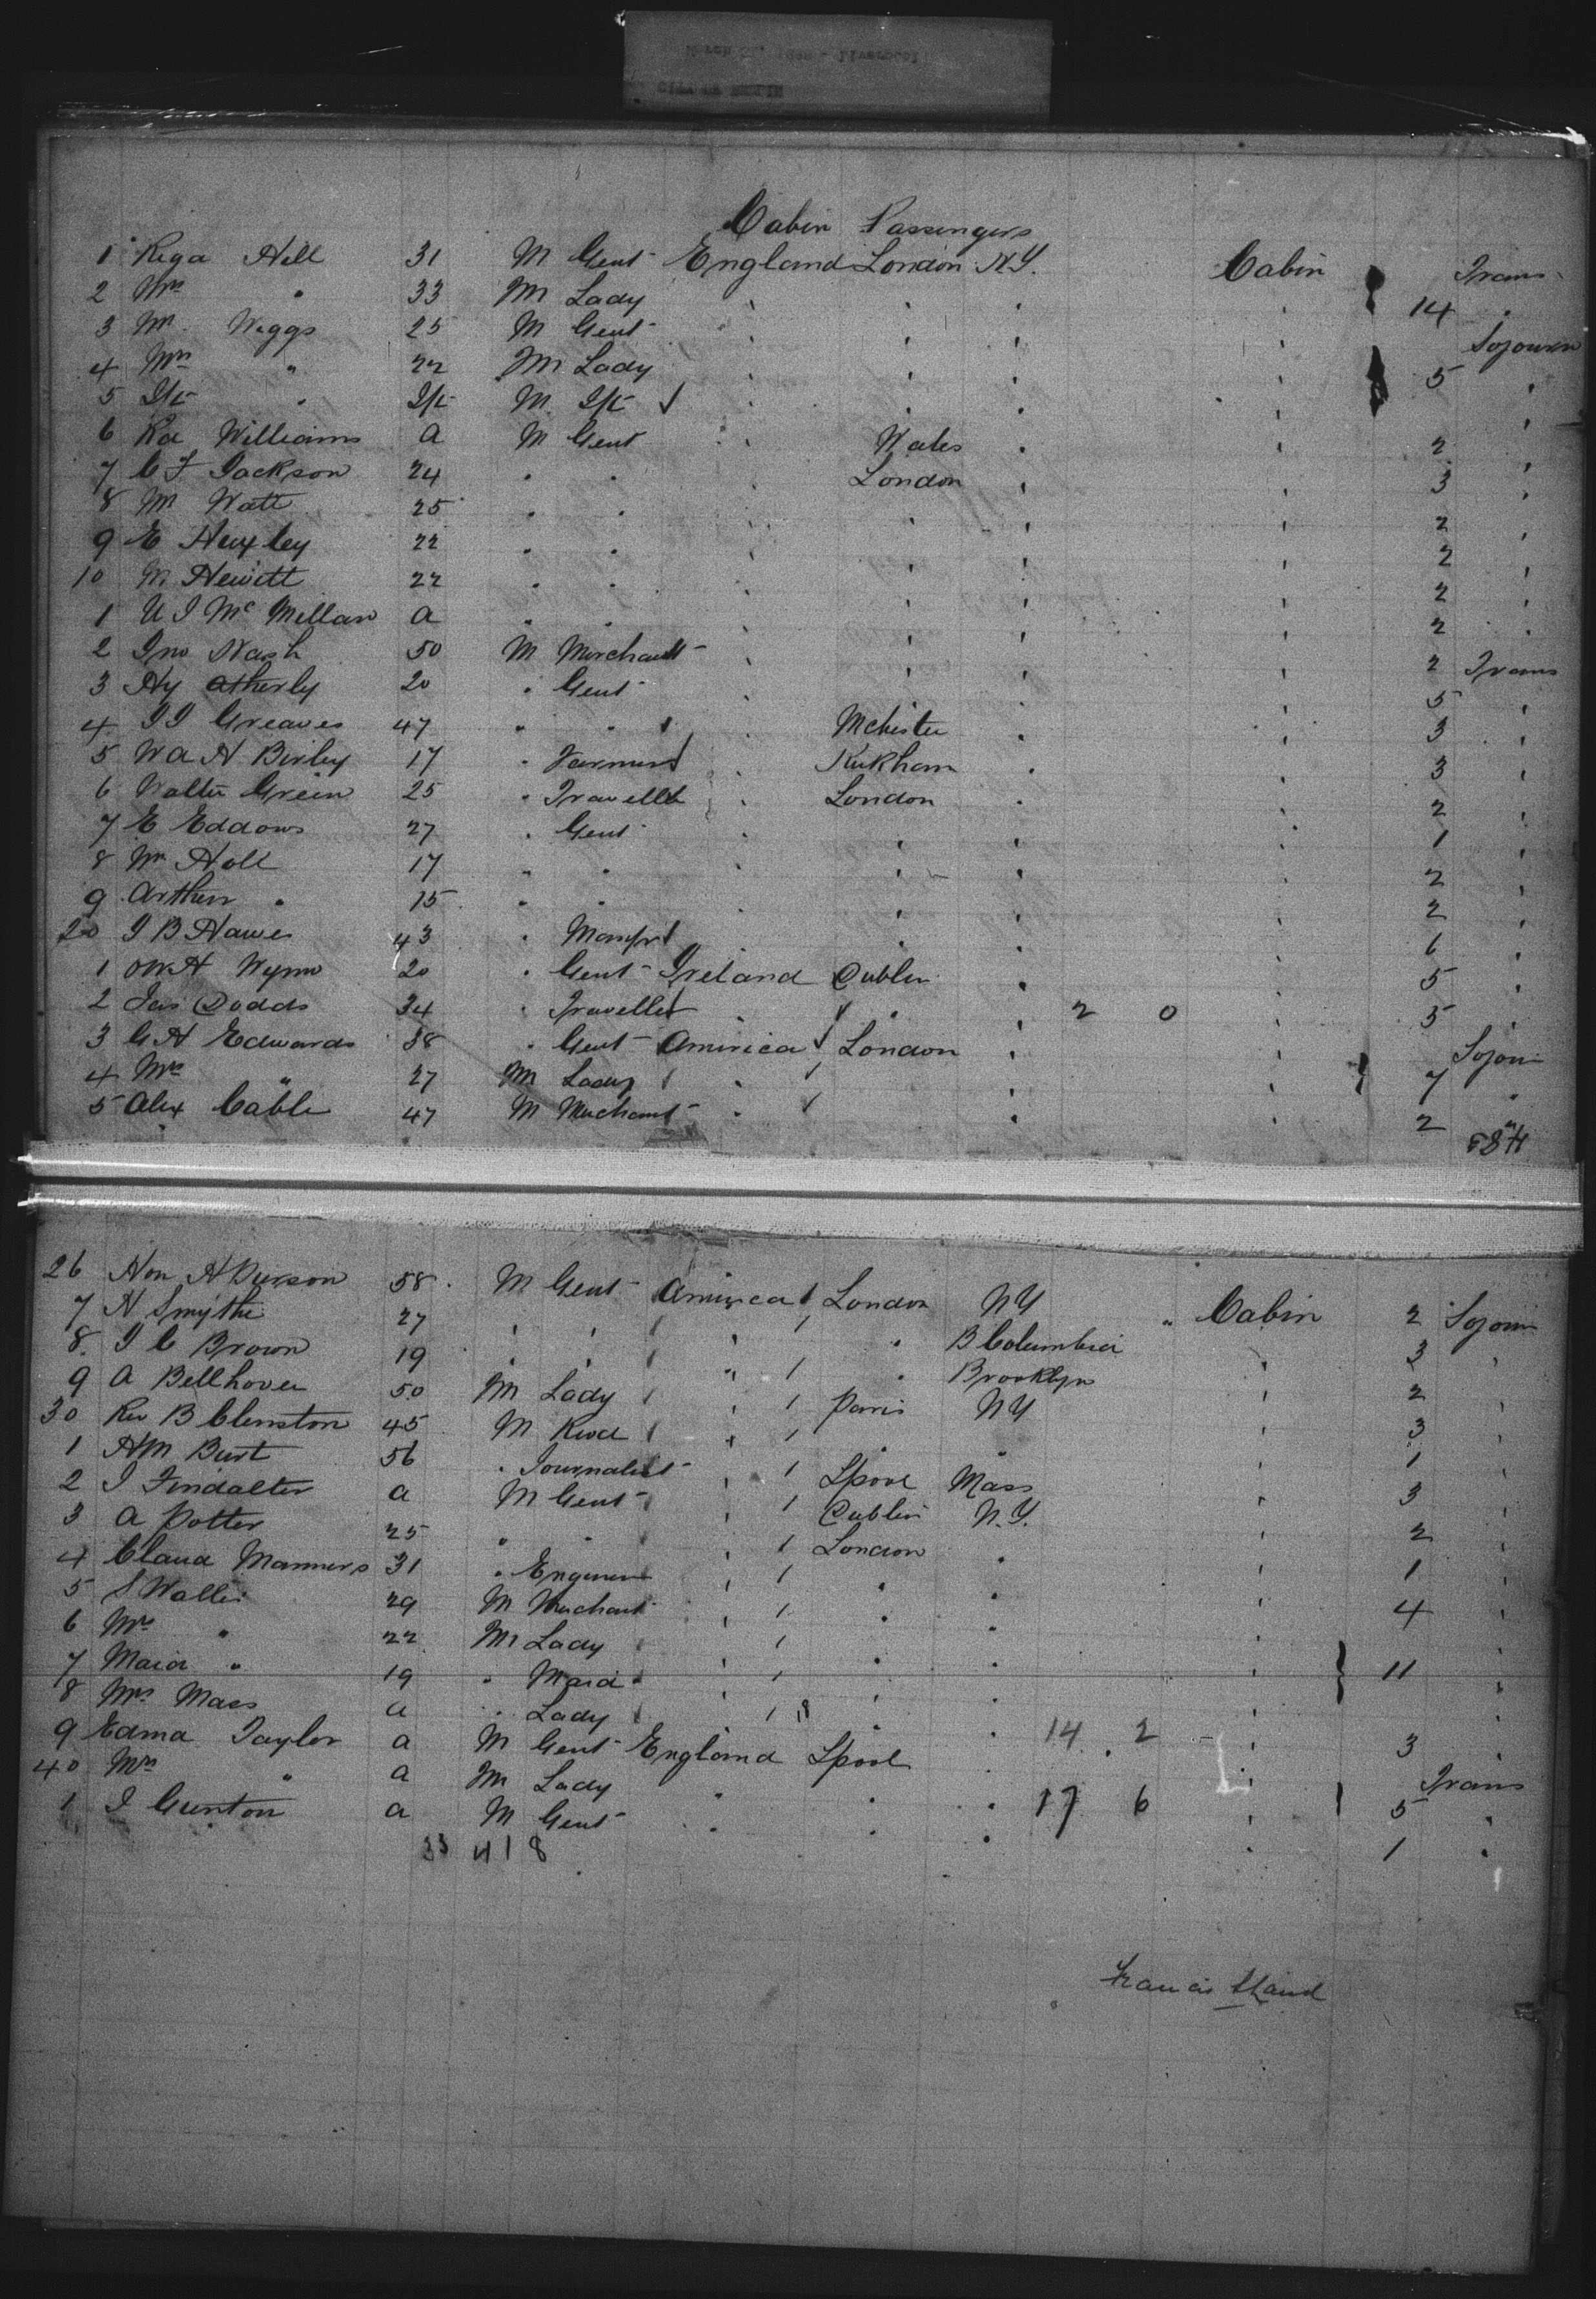 CITY OF BERLIN
Cabin Passengers
1 Rega Hill 31 M Gent England London N.Y. Cabin Trans
2 Mrs " 33 M Lady " " " " 14 "
3 Mr. Wiggs 25 M Gent " " " " Sojourn
4 Mrs " 22 M Lady " " " " 5 "
5 Inf " Inf M. Inf " " " " "
6 Rd Williams a M Gent " Wales " " 2 "
7 C F Jackson 24 " " " London " " 3 "
8 M Watt 25 " " " " " " 2 "
9 E Huxley 22 " " " " " " 2 "
10 M. Hewitt 22 " " " " " " 2 "
1 U J Mc Millan a " " " " " " 2 "
2 Jno Nash 50 M Merchant " " " " 2 Trans
3 Hy Atherly 20 " Gent " " " " 5 "
4 J J Greaves 47 " " " Mchester " " 3 "
5 W A H Birley 17 " Farmer " Kirkham " " 3 "
6 Walter Green 25 " Traveller " London " " 2 "
7 E Eddows 27 " Gent " " " " 1 "
8 Wm Holl 17 " " " " " " 2 "
9 Arthur " 15 " " " " " " 2 "
20 J B Hawes 43 " Manfr " " " " 6 "
1 O W H Wynn 20 " Gent Ireland Dublin " " 5 "
2 Jas Dodds 34 " Traveller " " " 2 0 " 5 "
3 G H Edwards 38 " Gent America London " " Sojour
4 Mrs " 27 M Lady " " " " 7 "
5 Alex Cable 47 M Merchant " " " " 2 "
26 Hon H Pierson 58 M Gent America London NY " Cabin 2 Sojour
7 H Smythe 27 " " " " B Columbia " 3 "
8 J C Brown 19 " " " " Brooklyn " 2 "
9 A Bellhover 50 M Lady " Paris NY " 3 "
30 Rev B Clenston 45 M Revd " " " " 1 "
1 H M Burt 56 " Journalist " Lpool Mass " 3 "
2 J Findalter a M Gent " Dublin N.Y. " 2 "
3 A Potter 25 " " " London " " 1 "
4 Claud Manners 31 " Engineer " " " " 4 "
5 S Wallis 29 M Merchant " " " " "
6 Mrs " 22 M Lady " " " " 11 "
7 Maid " 19 " Maid " " " " "
8 Mrs Maes a " Lady " 18 " " 14 2 " 3 "
9 Edmd Taylor a M Gent England Lpool " " Trans
40 Mrs " a M Lady " " " 17 6 " 5 "
1 J Gunton a M Gent " " " " 1 "
33 4 1 8
Francis Hand